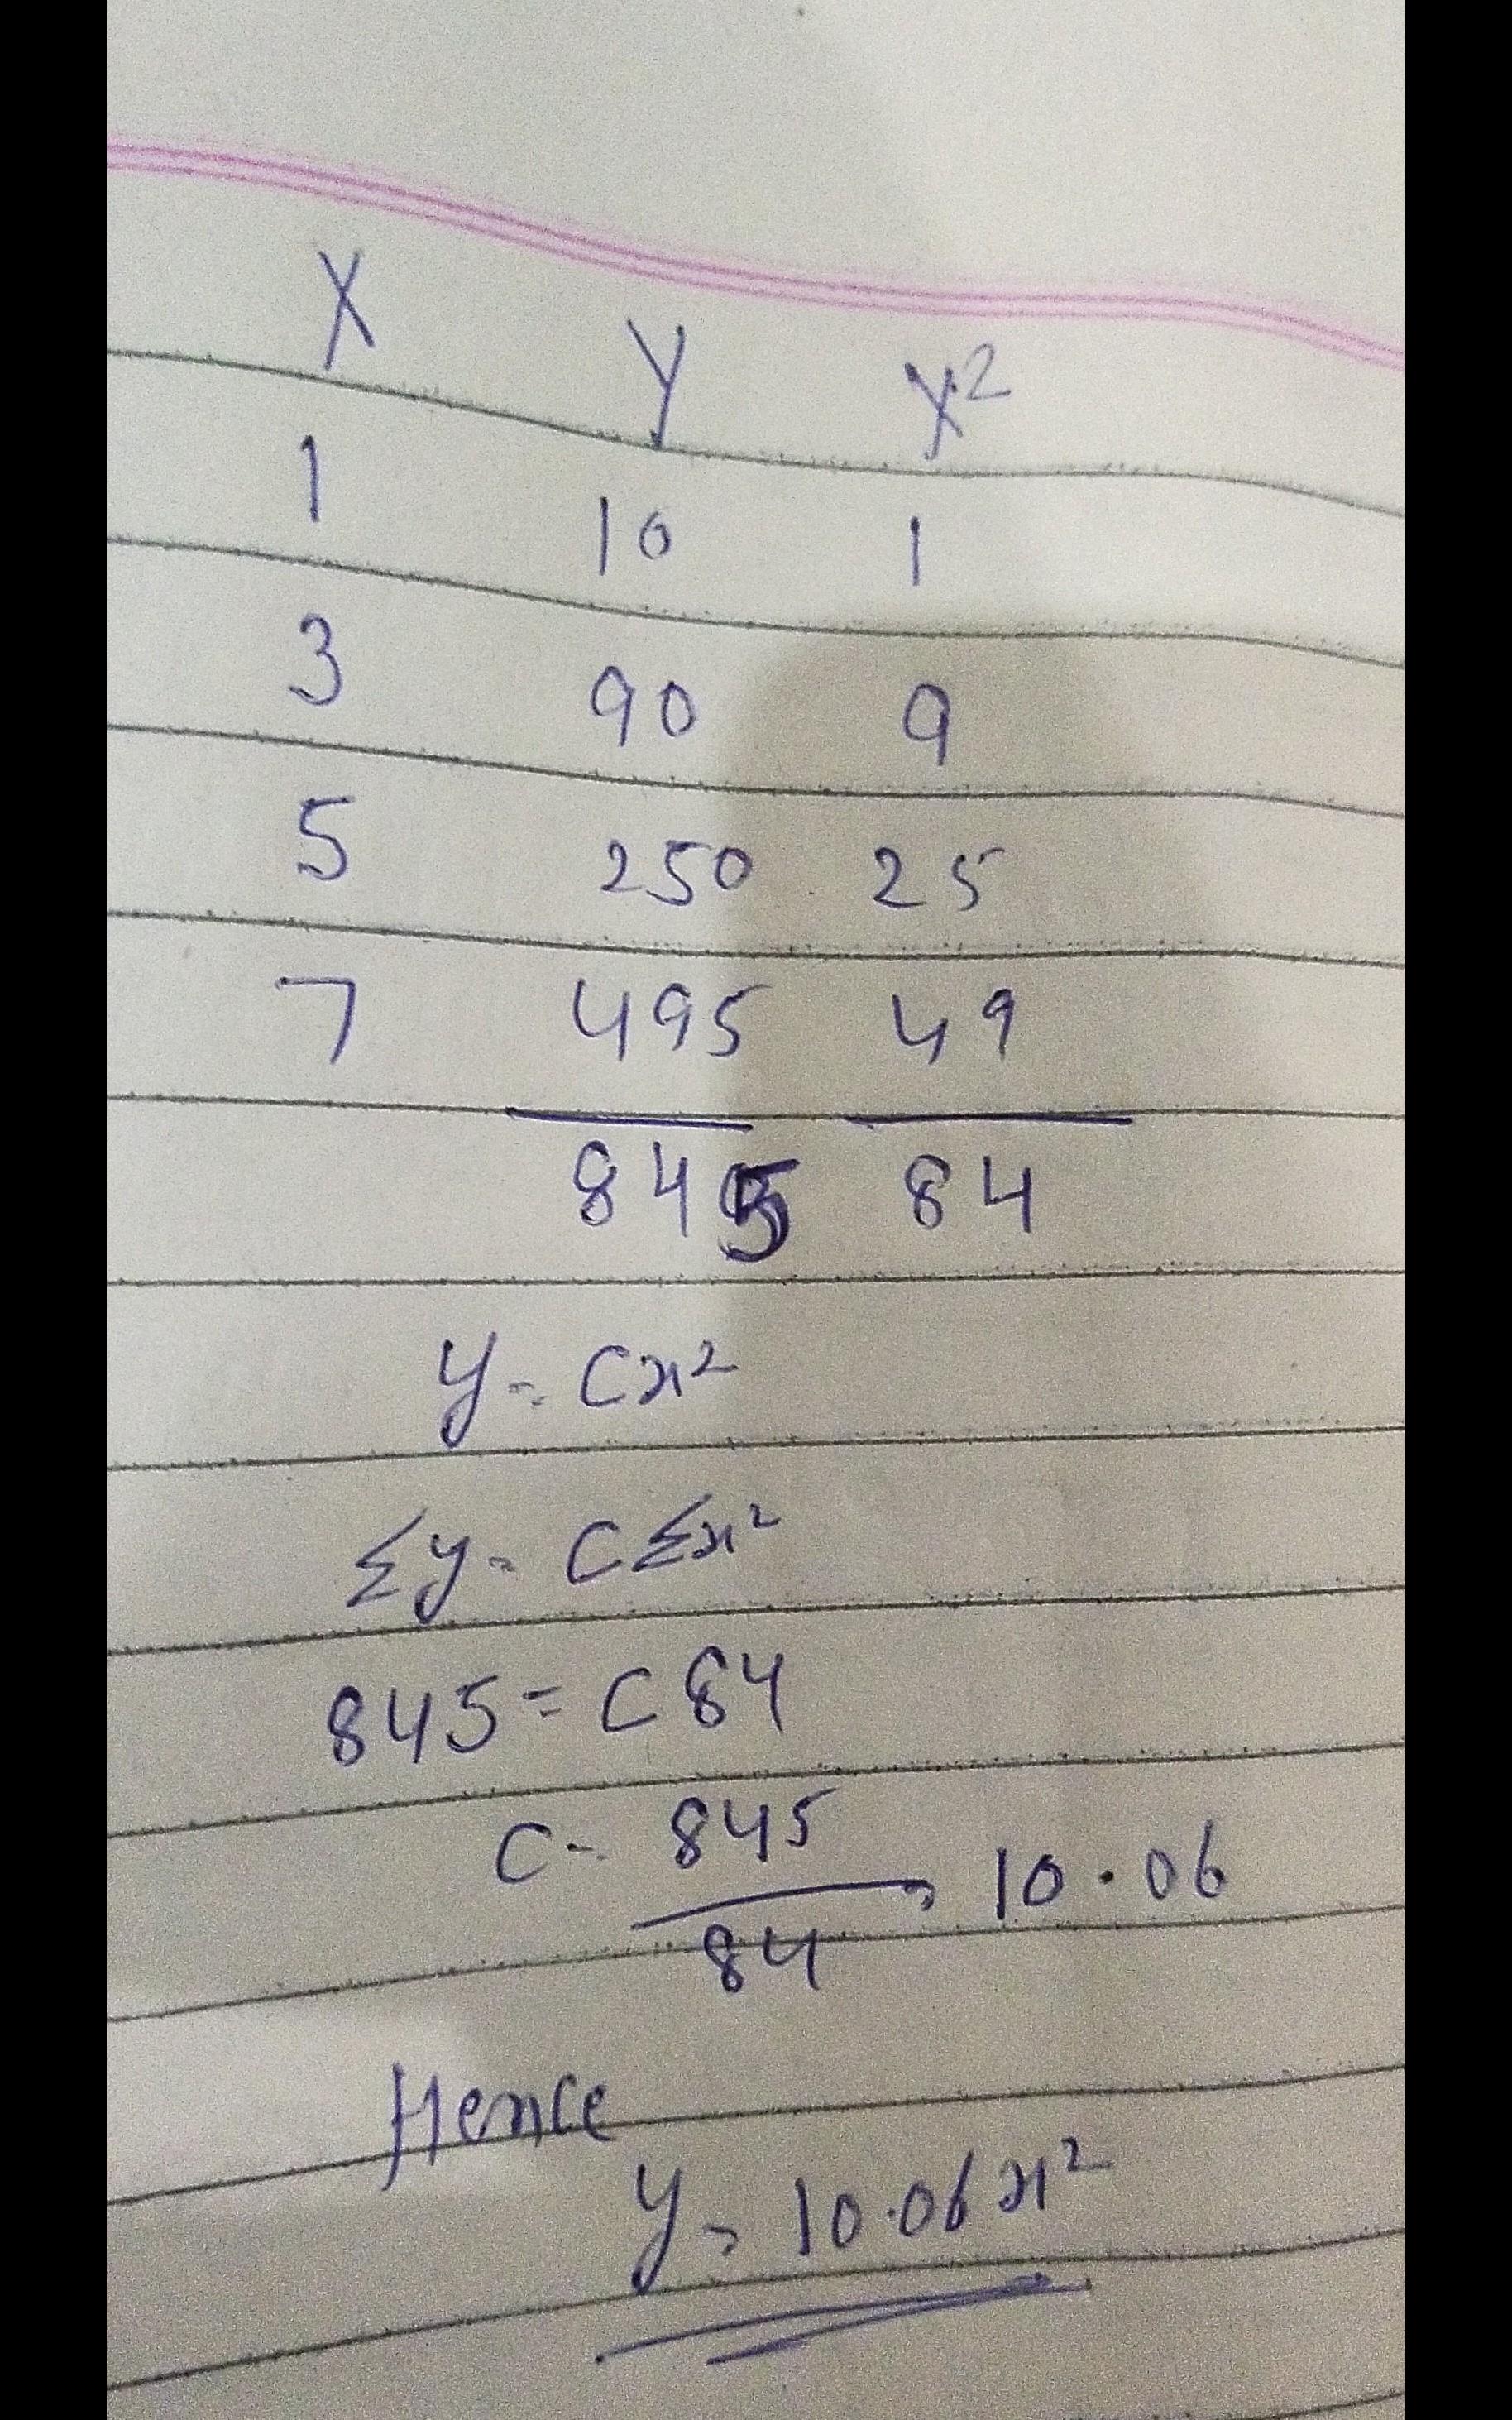 X Y X²
1 10 1
3 90 9
5 250 25
7 495 49
845 84
y = Cx²
Σy = CΣx²
845 = C84
C = 845/84 = 10.06
Hence
y = 10.06x²